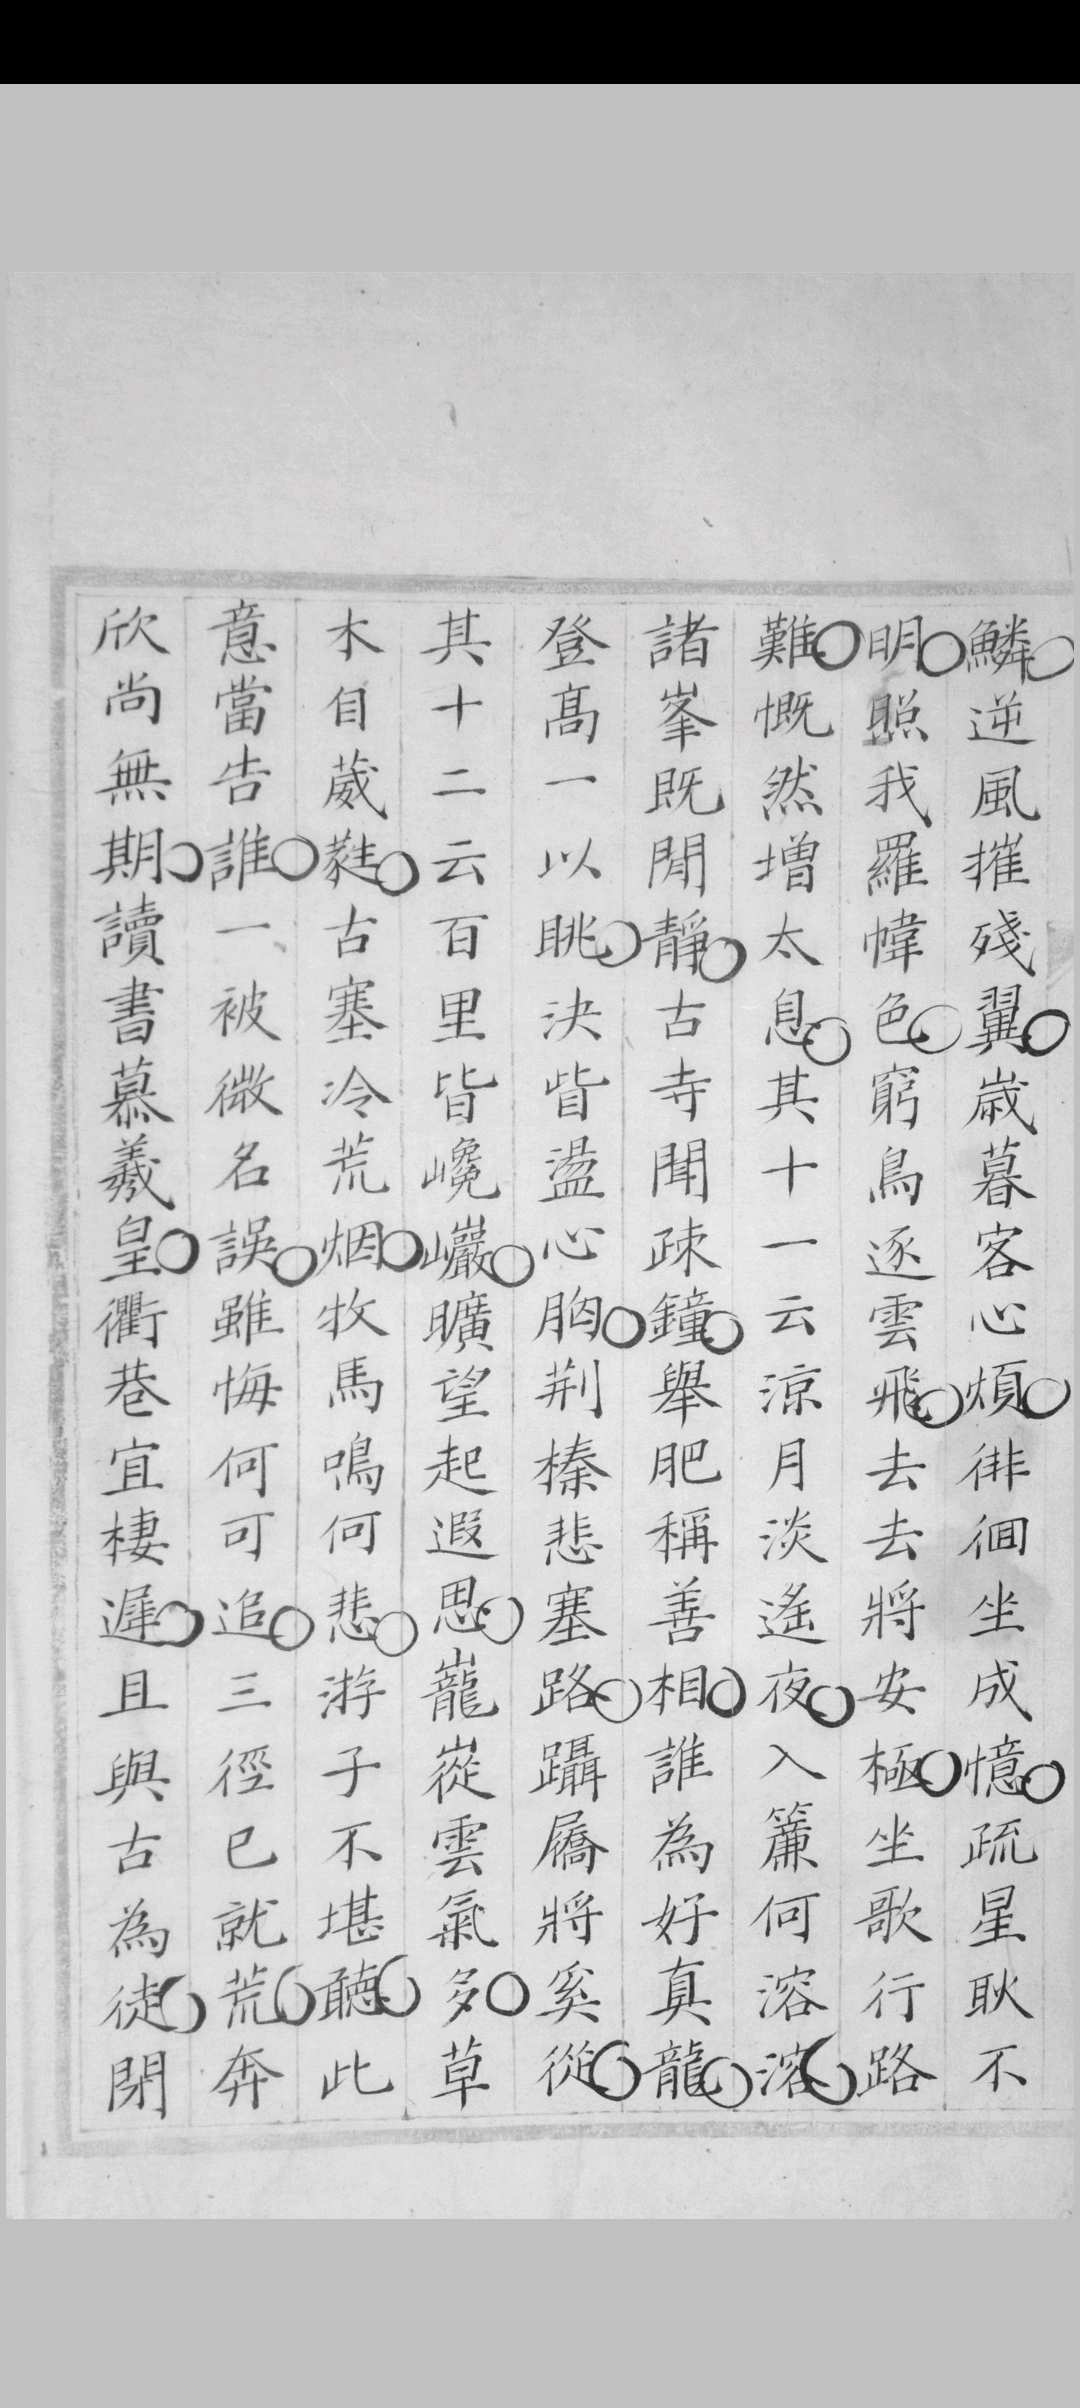 鱗逆風摧殘翼歲暮客心煩徘徊坐成憶疏星耿不
明照我羅幃色窮鳥逐雲飛去去將安極坐歌行路
難慨然增太息其十一云涼月淡遙夜入簾何溶溶
諸峯既閒靜古寺聞疎鐘舉肥稱善相誰為好真龍
登高一以眺決眥盪心胸荆榛悲塞路躡屩將奚從
其十二云百里皆巉巖曠望起遐思巃嵸雲氣多草
木自葳蕤古塞冷荒烟牧馬鳴何悲游子不堪聽此
意當告誰一被微名誤雖悔何可追三徑已就荒奔
欣尚無期讀書慕羲皇衢巷宜棲遲且與古為徒閉